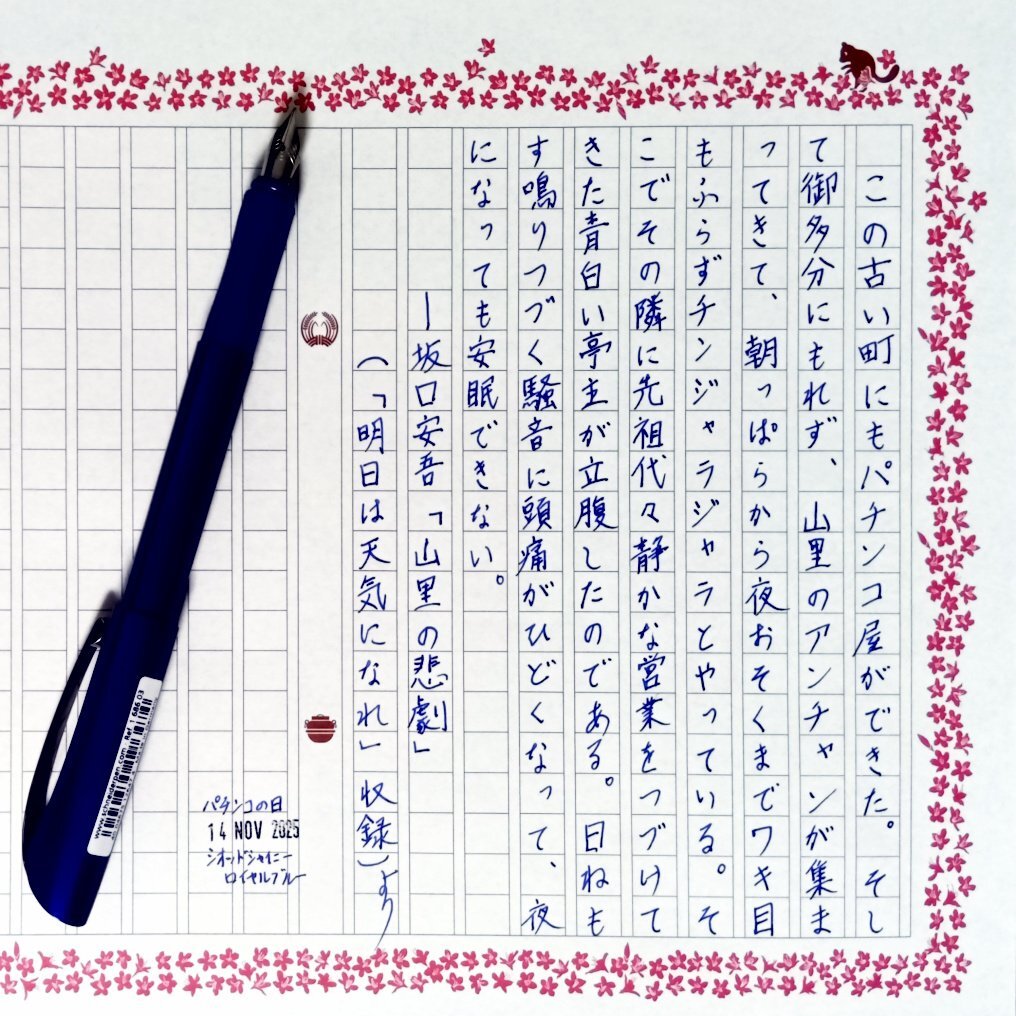 この古い町にもパチンコ屋ができた。そし
て御多分にもれず、山里のアンチャンが集ま
ってきて、朝っぱらから夜おそくまでワキ目
もふらずチンジャラジャラとやっている。そ
こでその隣に先祖代々静かな営業をつづけて
きた青白い亭主が立腹したのである。日ねも
す鳴りつづく騒音に頭痛がひどくなって、夜
になっても安眠できない。
―坂口安吾「山里の悲劇」
(「明日は天気になれ」収録)より
パチンコの日
14 NOV 2025
シオッドシャイニー
ロイヤルブルー
www.schneiderpen.com Ref. 1 686 03